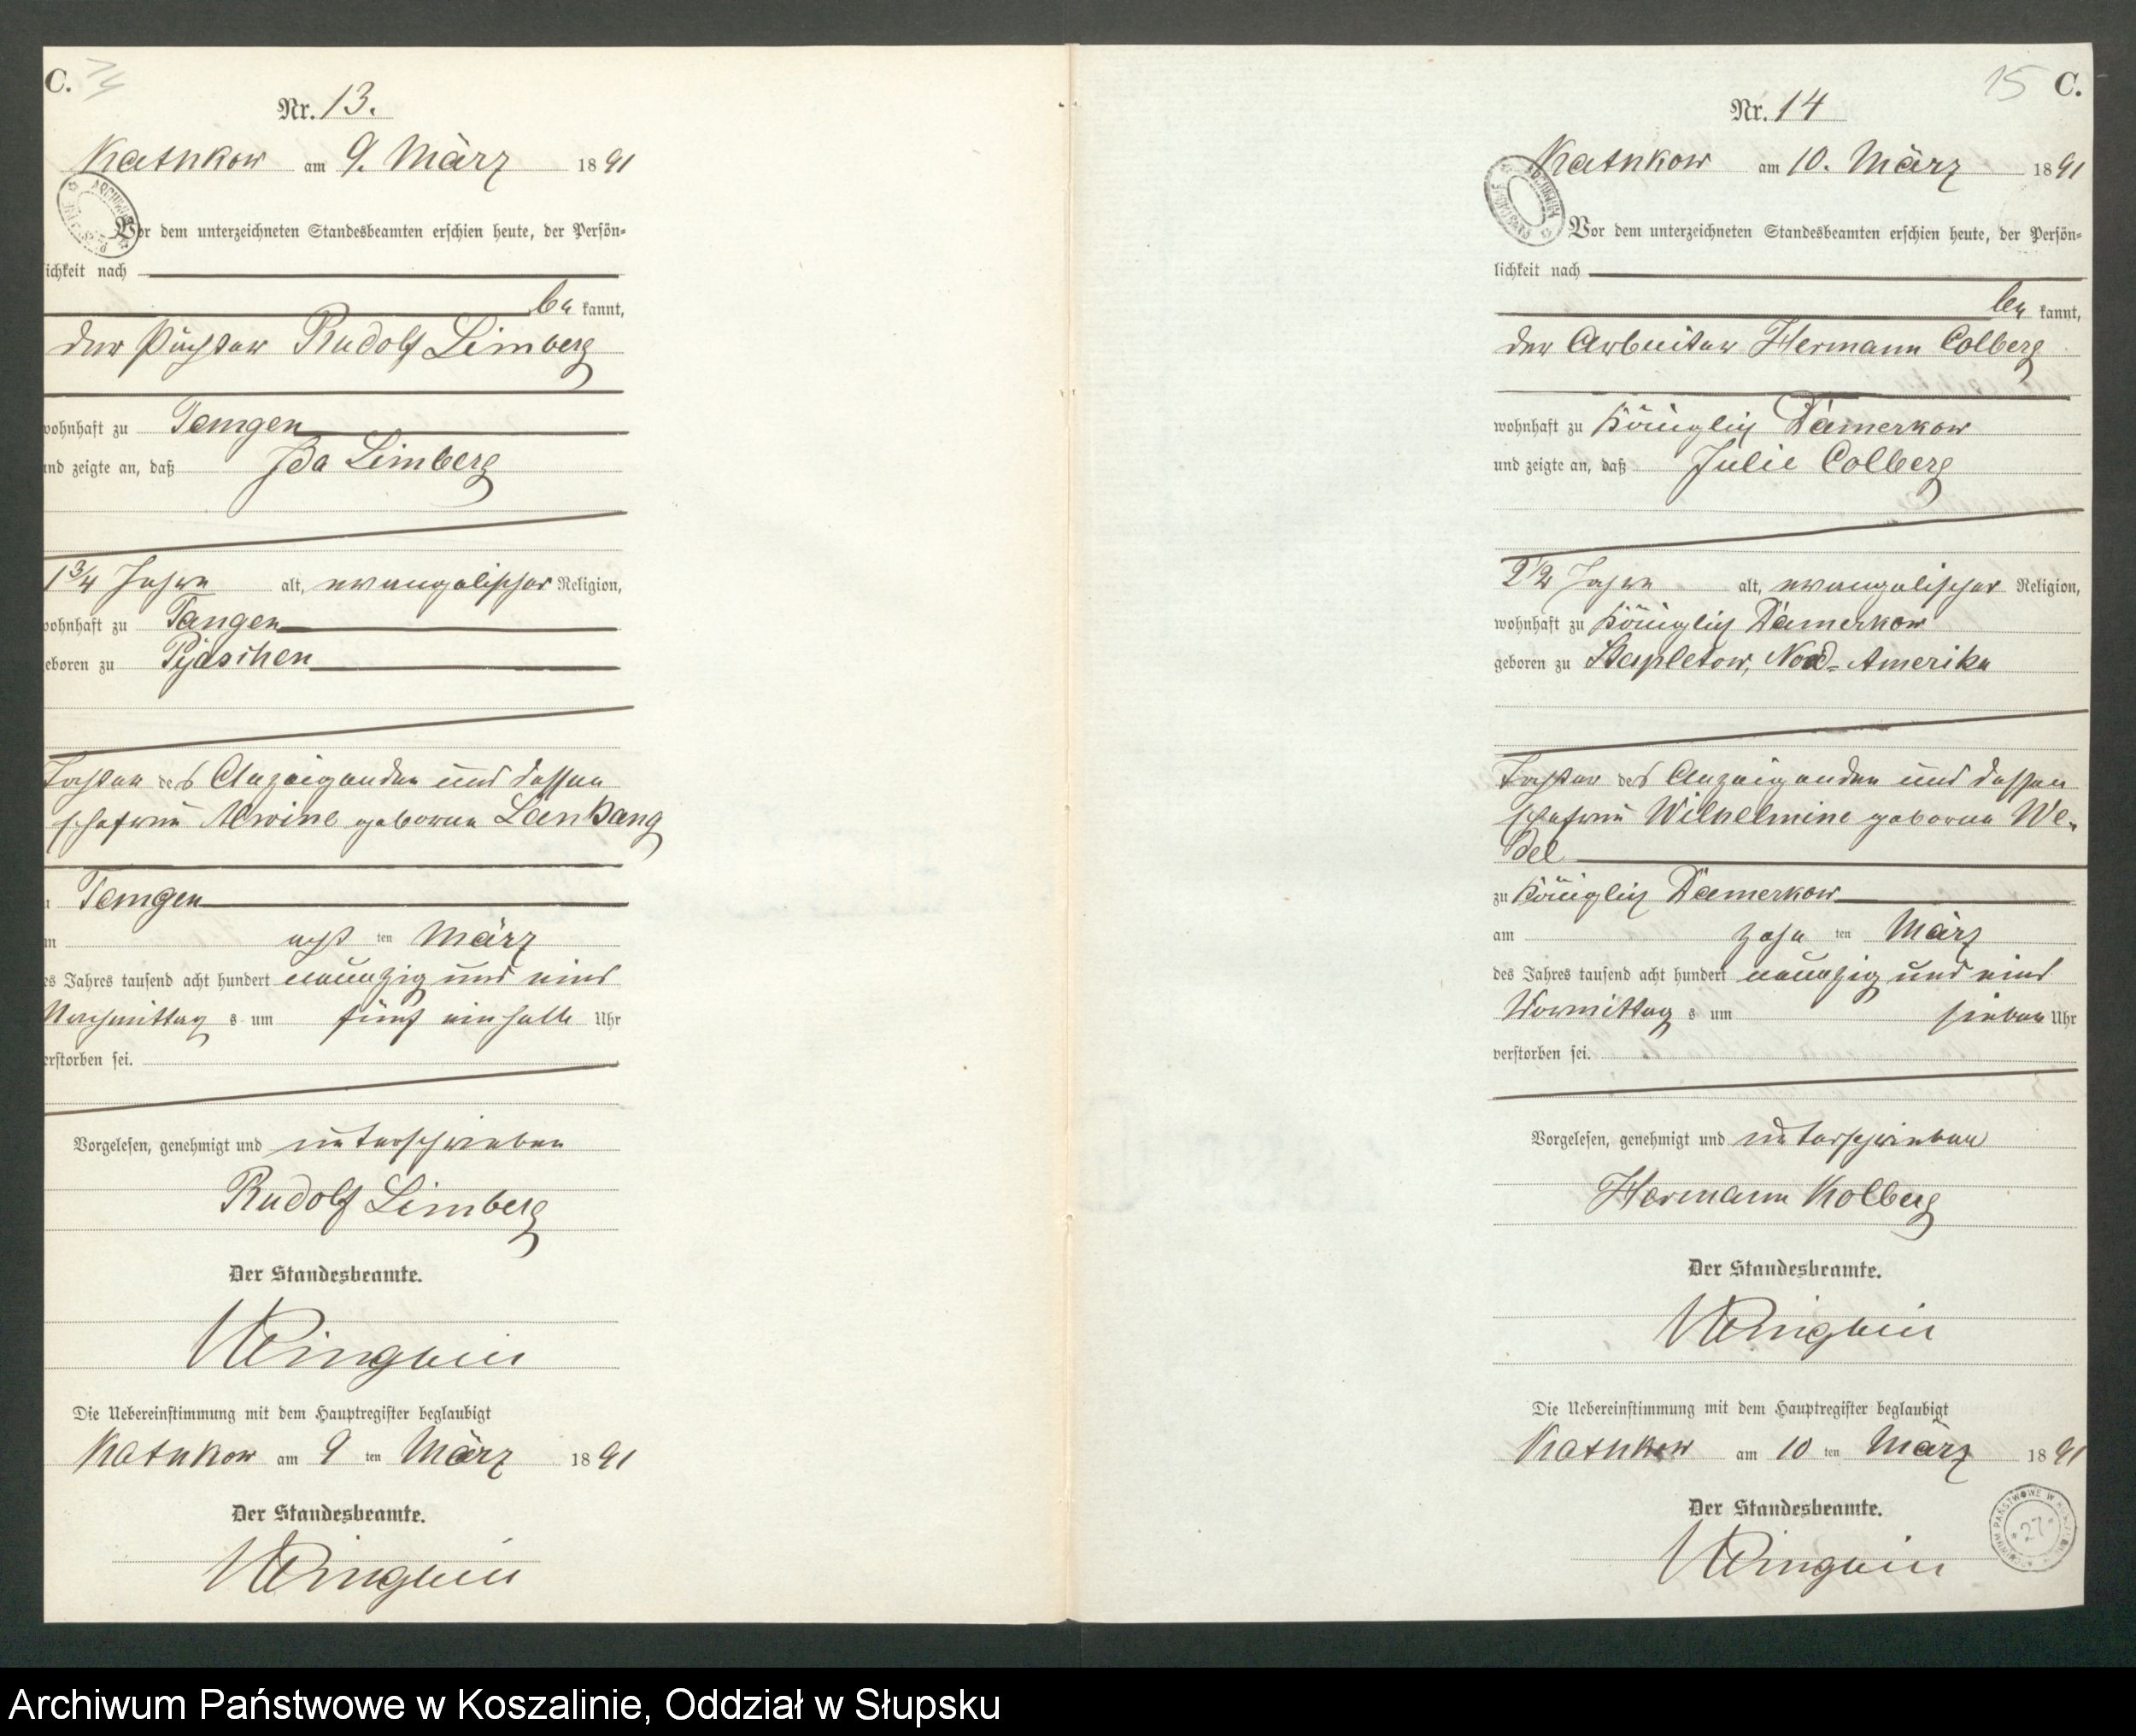 C.
Nr. 13.
Katnkow am 9. März 1891
Vor dem unterzeichneten Standesbeamten erschien heute, der Persön-
ichkeit nach
be kannt,
der Püchter Rudolf Limberg
wohnhaft zu Tamgen
und zeigte an, daß Ida Limberg
1 3/4 Jahre alt, evangelischer Religion,
wohnhaft zu Tangen
eboren zu Pyaschen
Tochter des Anzeigenden und dessen
Ehefrau Alwine geborne Lankang
Tamgen
acht ten März
es Jahres tausend acht hundert neunzig und eins
Nachmittag s um fünf einhalb Uhr
erstorben sei.
Vorgelesen, genehmigt und unterschrieben
Rudolf Limberg
Der Standesbeamte.
Die Uebereinstimmung mit dem Hauptregister beglaubigt
Katnkow am 9 ten März 1891
Der Standesbeamte.
15 C.
Nr. 14
Katnkow am 10. März 1891
Vor dem unterzeichneten Standesbeamten erschien heute, der Persön-
lichkeit nach
be kannt,
der Arbeiter Hermann Colberg
wohnhaft zu Königlich Damerkow
und zeigte an, daß Julie Colberg
2 1/2 Jahre alt, evangelischer Religion,
wohnhaft zu Königlich Damerkow
geboren zu Stapletow, Nord-Amerika
Tochter des Anzeigenden und dessen
Ehefrau Wilhelmine geborne We-
del
zu Königlich Damerkow
am zehn ten März
des Jahres tausend acht hundert neunzig und eins
Vormittag s um sieben Uhr
verstorben sei.
Vorgelesen, genehmigt und unterschrieben
Hermann Kolberg
Der Standesbeamte.
Die Uebereinstimmung mit dem Hauptregister beglaubigt
Katnkow am 10 ten März 1891
Der Standesbeamte.
27
Archiwum Państwowe w Koszalinie, Oddział w Słupsku